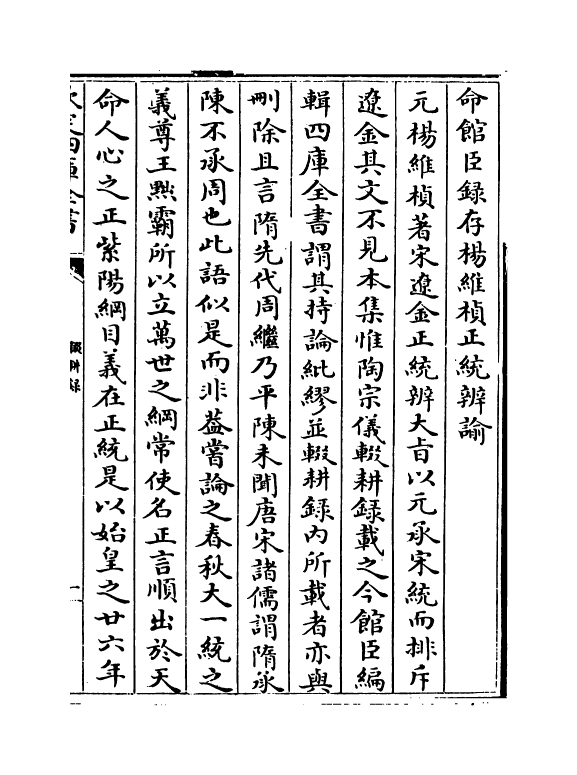 命館臣録存楊維楨正統辨諭
元楊維楨著宋遼金正統辨大旨以元承宋統而排斥
遼金其文不見本集惟陶宗儀輟耕録載之今館臣編
輯四庫全書謂其持論紕繆並輟耕録内所載者亦與
刪除且言隋先代周繼乃平陳未聞唐宋諸儒謂隋承
陳不承周也此語似是而非葢嘗論之春秋大一統之
義尊王黜霸所以立萬世之綱常使名正言順出於天
命人心之正紫陽綱目義在正統是以始皇之廿六年
欽定四庫全書
輟耕録
一